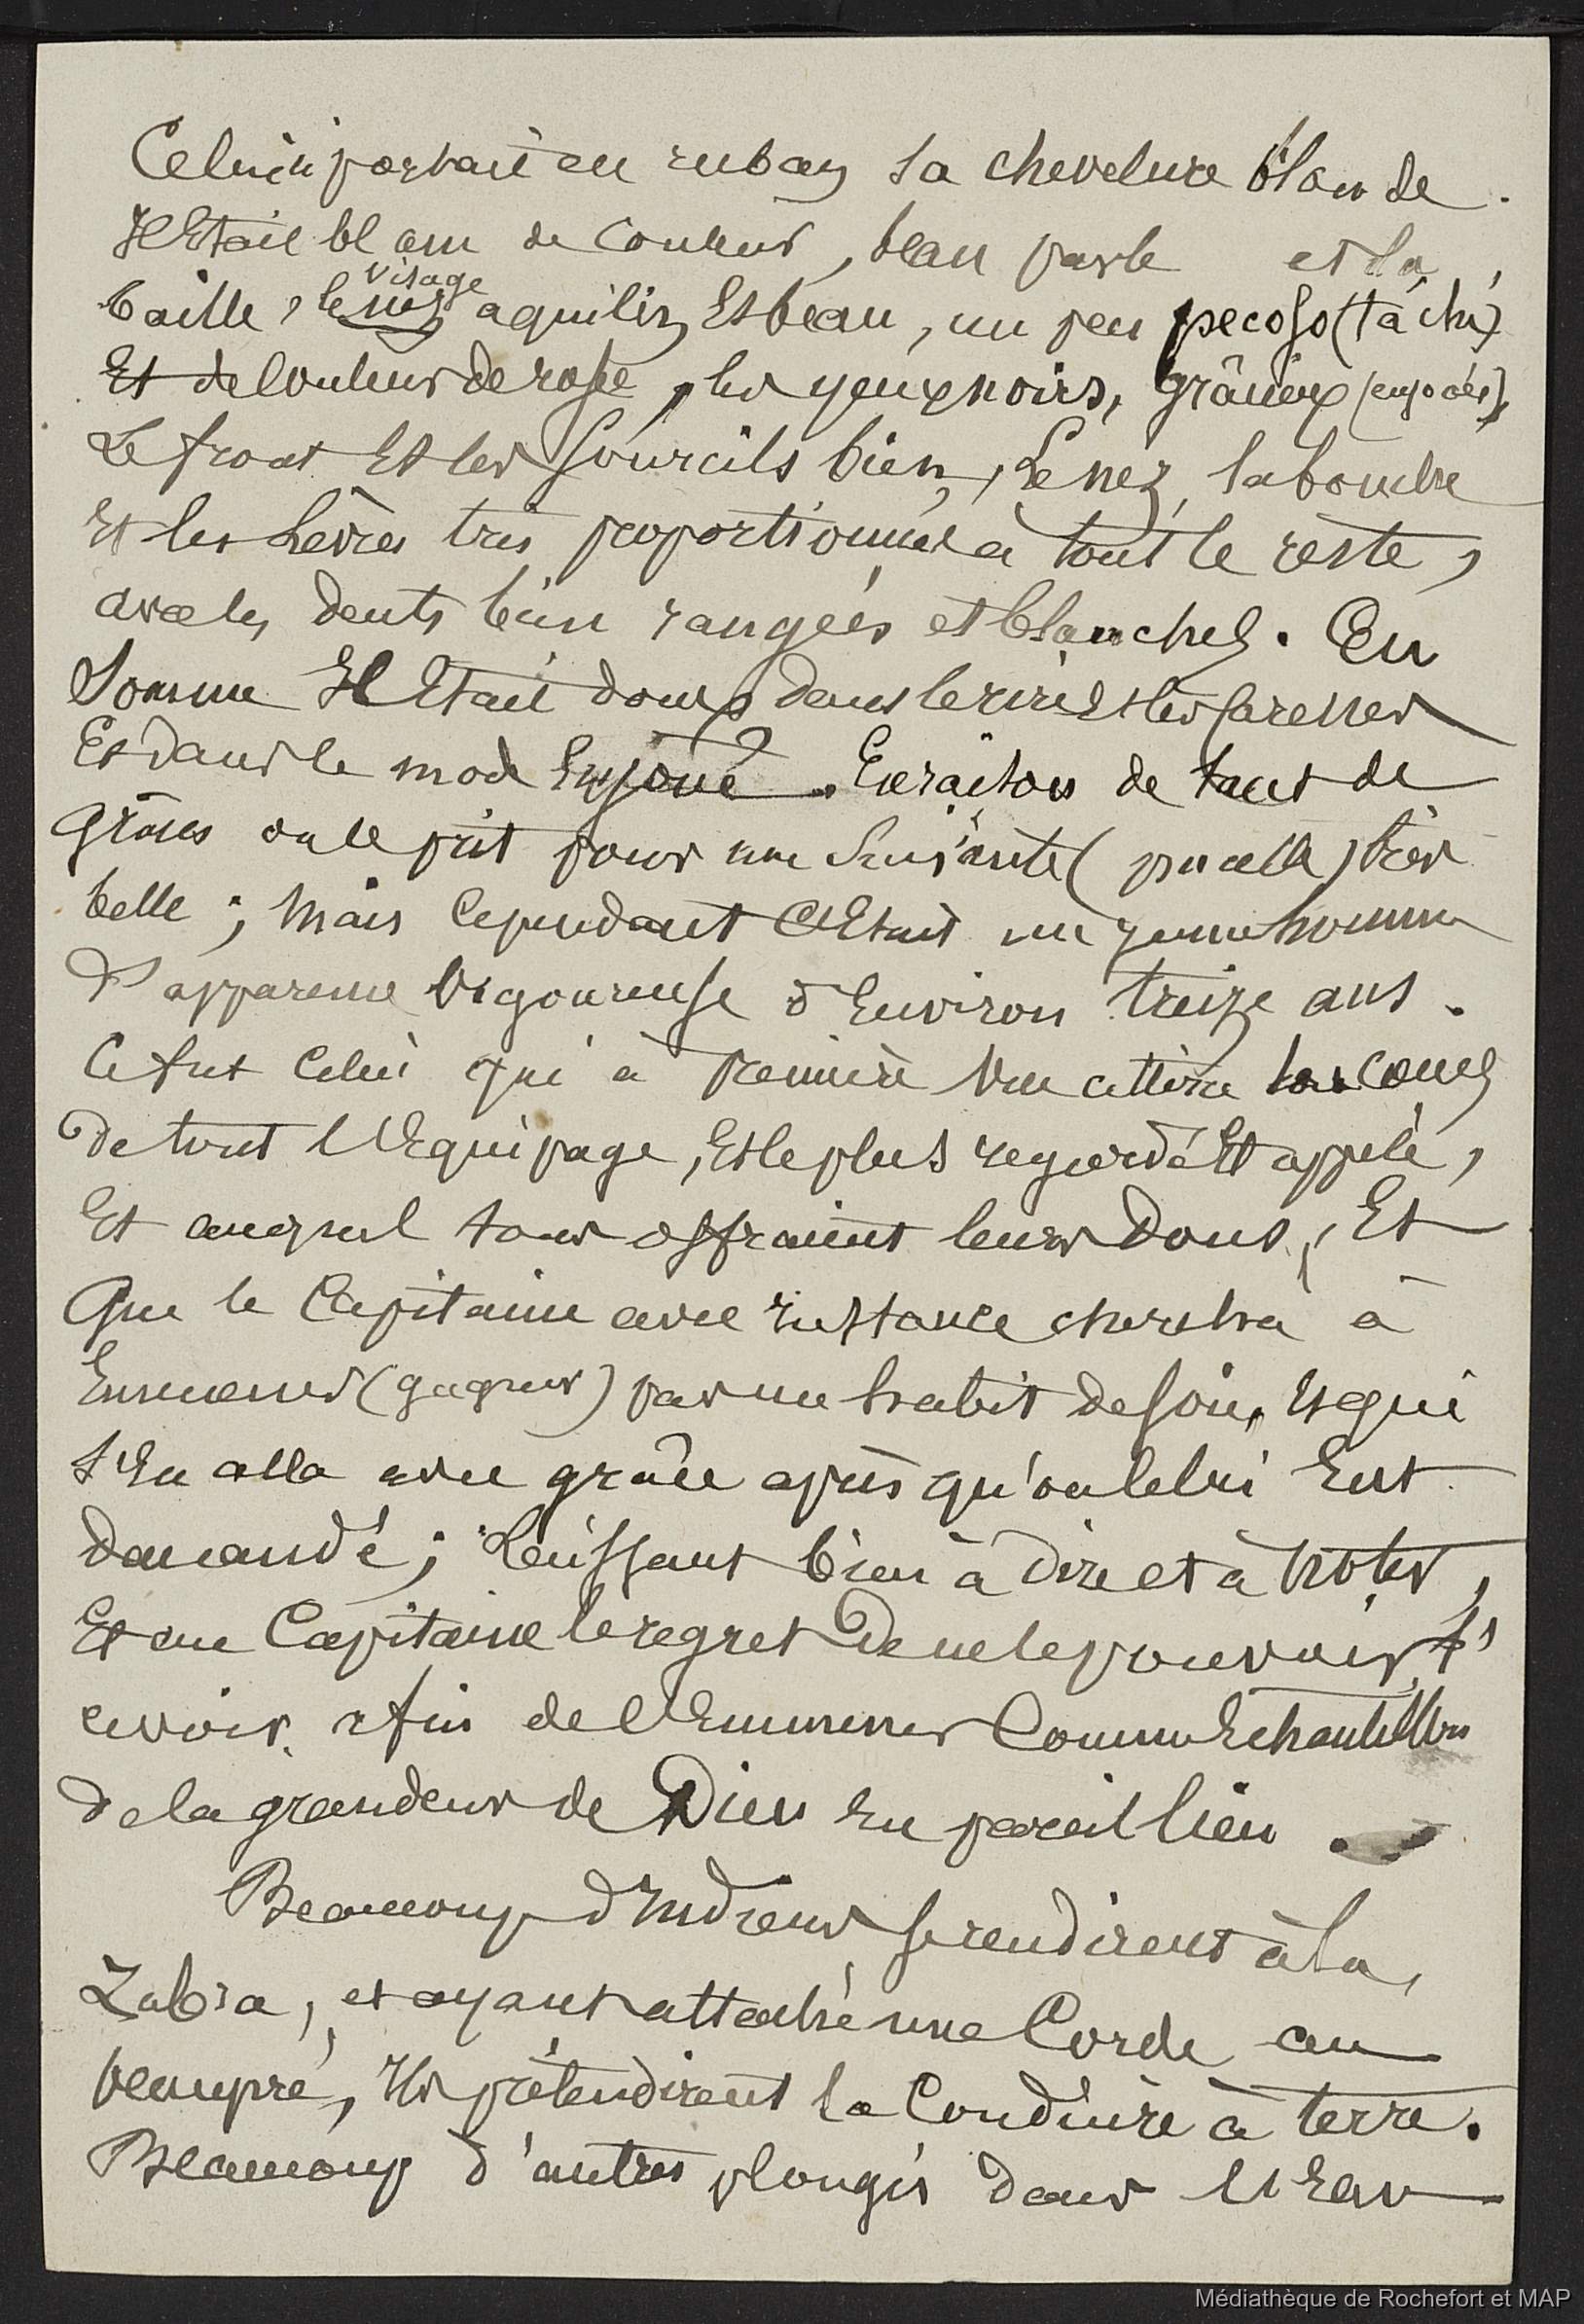 Celui ci portait en ruban sa chevelure blonde.
Il Etait blanc de couleur, beau par le et la
visage
taille, le nez aquilin Et beau, un peu pecoso (tâché)
Et de Couleur de rose, les yeux noirs, grâcieux (enjoués),
Le front Et les Sourcils bien, Le nez, la bouche
Et les Lèvres très proportionnés à tout le reste,
avec les dents bien rangées et blanches. En
Somme Il Etait doux dans le rire Et les Caresses
Et dans le mode Enjoué. En raison de tant de
Grâces on le prit pour une Suivante (pucelle) très
belle; Mais Cependant C'Etait un jeune homme
d'apparence Vigoureuse d'Environ treize ans.
Ce fut Celui qui à première Vue attira les Coeurs
De tout l'Equipage, Et le plus regardé Et appelé,
Et auquel tous offraient leurs Dons, Et
Que le Capitaine avec Instance chercha à
Emmener (gagner) par un habit de soie, Et qui
S'En alla avec grâce après qu'on le lui Eut
demandé; Laissant bien à dire et à noter,
Et au Capitaine le regret De ne le pouvoir
avoir, afin de l'Emmener Comme Echantillon
de la grandeur de Dieu En pareil lieu.
Beaucoup d'Indiens se rendirent à la
Zabra, et ayant attaché une Corde au
beaupré, Ils prétendirent la Conduire à terre.
Beaucoup d'autres plongés dans l'Eau
Médiathèque de Rochefort et MAP